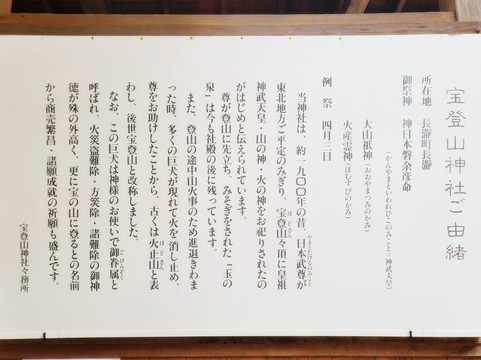 宝登山神社ご由緒
所在地　長瀞町長瀞
御祭神　神日本磐余彦命
（かんやまといわれひこのみこと・神武天皇）
大山祇神（おおやまつみのかみ）
火産霊神（ほむすびのかみ）
例　祭　四月三日
当神社は、約一九〇〇年の昔、日本武尊が
やまとたけるのみこと
東北地方ご平定のみぎり、宝登山々頂に皇祖
神武天皇・山の神・火の神をお祀りされたの
がはじめと伝えられています。
尊が登山に先立ち、みそぎをされた「玉の
泉」は今も社殿の後に残っています。
また、登山の途中山火事のため進退きわま
った時、多くの巨犬が現れて火を消し止め、
尊をお助けしたことから、古くは火止山と表
ほどさん
わし、後世宝登山と改称しました。
なお、この巨犬は神様のお使いで御眷属と
ごけんぞく
呼ばれ、火災盗難除・方災除・諸難除の御神
徳が殊の外高く、更に宝の山に登るとの名前
から商売繁昌・諸願成就の祈願も盛んです。
宝登山神社々務所